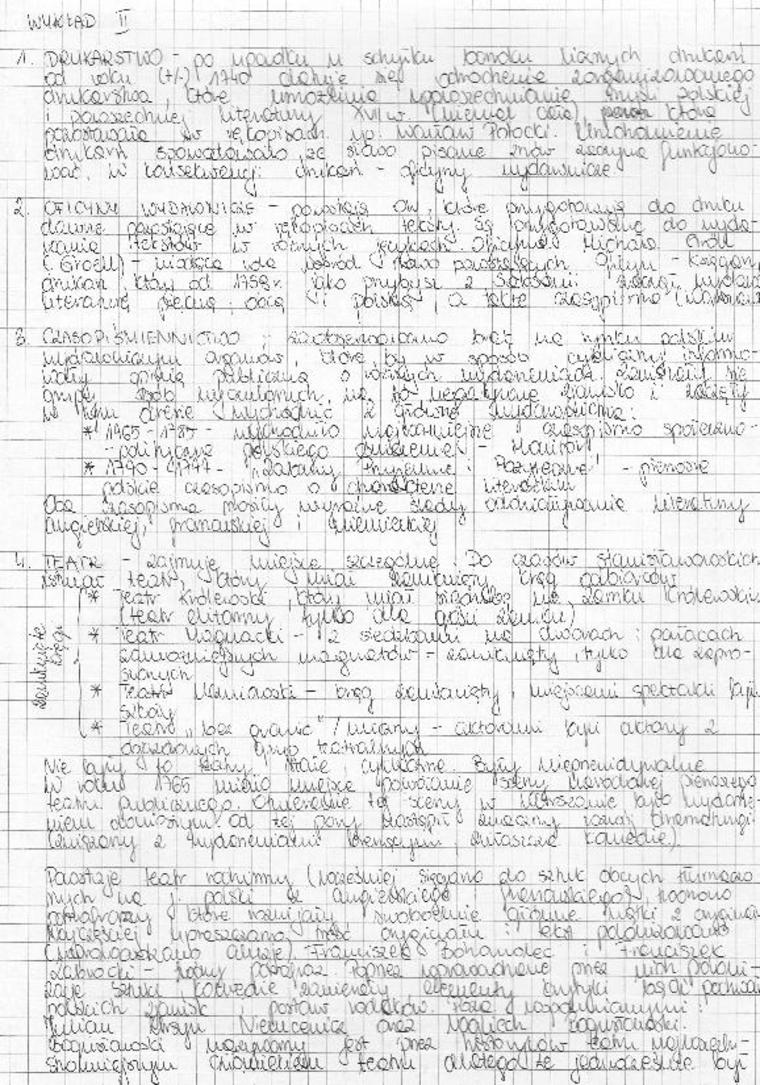 WYKŁAD II
1. DRUKARSTWO - po upadku u schyłku baroku licznych drukarni
od roku (+/-) 1740 datuje się odrodzenie zorganizowanego
drukarstwa, które umożliwia upowszechnianie myśli polskiej
i powszechnej literatury XVII w. (niemal cała), która
pozostawała w rękopisach np. Wacław Potocki. Uruchomienie
drukarni spowodowało, że słowo pisane znów zaczyna funkcjono-
wać. W konsekwencji drukarń - oficyny wydawnicze.
2. OFICYNY WYDAWNICZE - powstają one, które przygotowują do druku
dawne pozostające w rękopisach teksty. Są przygotowane do wyda-
wania tekstów w różnych językach. Oficyna Michała Gröll
(Groell) - wiodąca rola pośród nowo powstających oficyn - księgarz,
drukarz, który od 1759 r. jako przybysz z Saksonii zaczął wydawać
literaturę piękną, obcą i polską, a także czasopisma
3. CZASOPIŚMIENNICTWO; zaobserwowano brak na rynku polskim
wydawniczym organów, które by w sposób cykliczny informo-
wały opinię publiczną o różnych wydarzeniach. Znalazły się
grupy osób na to negatywne zjawisko i zaczęły
w tym okresie wychodzić 2 główne wydawnictwa:
* 1965 - 1785 - wychodziło najważniejsze czasopismo społeczno-
- polityczne polskiego oświecenia - "Monitor"
* 1770 - 1777 - "Zabawy Przyjemne i Pożyteczne" - pierwsze
polskie czasopismo o charakterze literackim
Oba czasopisma nosiły wyraźne ślady oddziaływania literatury
angielskiej, francuskiej i niemieckiej
4. TEATR - zajmuje miejsce szczególne. Do czasów stanisławowskich
istniał teatr, który miał zamknięty krąg odbiorców
zamknięte kręgi
* Teatr Królewski, który miał siedzibę na Zamku Królewskim
(teatr elitarny tylko dla gości)
* Teatr Magnacki - z siedzibami na dworach i pałacach
zamożniejszych magnatów - zamknięty, tylko dla zapro-
szonych
* Teatr Uczniowski - krąg zamknięty, miejscami spektakli były
szkoły
* Teatr "bez granic" / - aktorami byli aktorzy z
grup teatralnych
Nie były to teatry stałe, cykliczne. Były nieprzewidywalne
W roku 1765 miało miejsce powołanie sceny narodowej pierwszego
teatru publicznego. Otwarcie tej sceny w Warszawie było wydarze-
niem doniosłym. Od tej pory nastąpił znaczny rozwój dramaturgii
(związany z wydarzeniami bieżącymi, zwłaszcza komedie).
Powstaje teatr rodzimy (wcześniej sięgano do sztuk obcych tłumaczo-
nych na j. polski z angielskiego i francuskiego),
które rozwijały swobodnie główne wątki z oryginału
Najczęściej upraszczano treść oryginału i tekst polonizowano
(wprowadzano aluzje). Franciszek Bohomolec i Franciszek
Zabłocki - Poprzez wprowadzone przez nich poloni-
zacje sztuki komedie zawierały elementy krytyki
polskich zjawisk i postaw rodaków. Poza wspomnianymi:
Julian Ursyn Niemcewicz oraz Wojciech Bogusławski.
Bogusławski nazywany jest przez historyków teatru
człowiekiem teatru dlatego że jednocześnie był